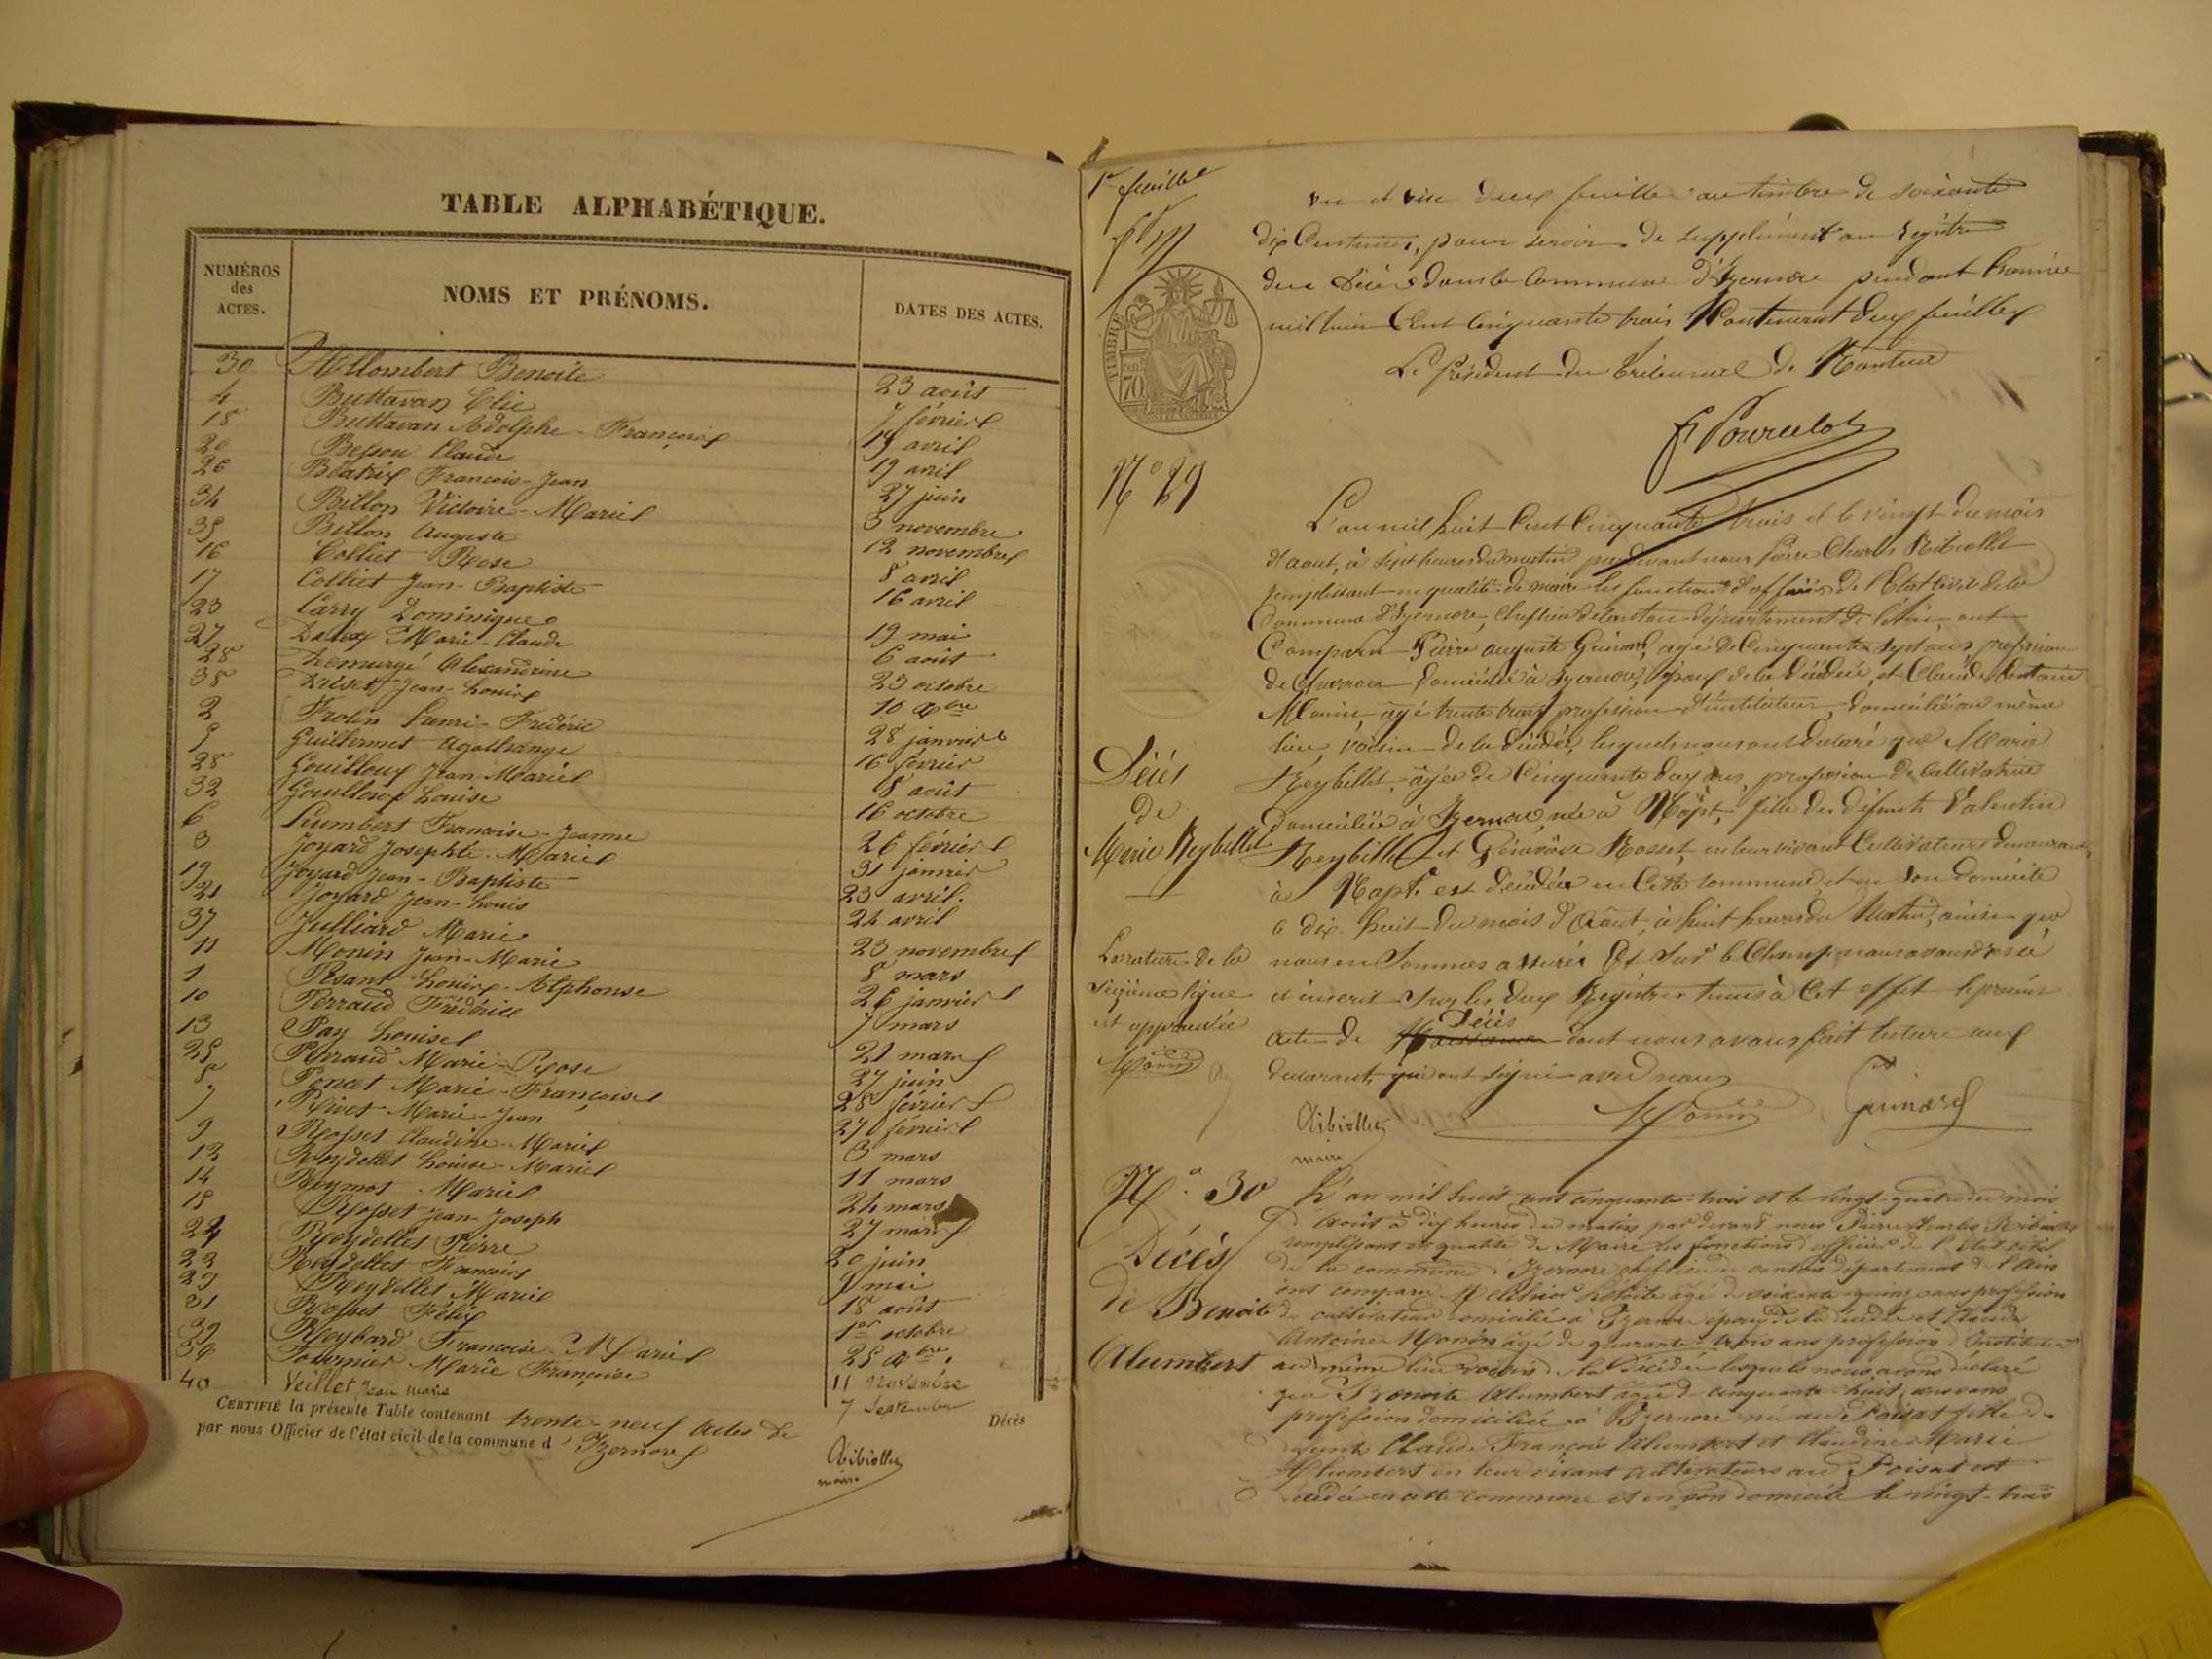 TABLE ALPHABÉTIQUE.
NUMÉROS des ACTES.
NOMS ET PRÉNOMS.
DATES DES ACTES.
30 Allombert Benoite 23 août
4 Buttavan Elie 7 février
18 Buttavan Adolphe-François 17 avril
20 Besson Claude 19 avril
26 Béatrix François-Jean 27 juin
34 Billon Victoire-Marie 3 novembre
35 Billon Auguste 12 novembre
16 Colliet Rose 8 avril
17 Colliet Jean-Baptiste 16 avril
23 Carry Dominique 19 mai
27 Marie-Claude 6 août
Alexandrine 23 octobre
38 Jean-Louis 10 Xbre
2 Frolin Henri-Frédéric 28 janvier
5 Guillermet Agathange 16 février
28 Gouilloux Jean-Marie 8 août
32 Gouilloux Louise 16 octobre
6 Humbert Françoise-Jeanne 26 février
3 Joyard Josephte-Marie 31 janvier
19 Joyard Jean-Baptiste 23 avril.
21 Joyard Jean-Louis 24 avril
37 Julliard Marie 23 novembre
11 Monin Jean-Marie 8 mars
1 Pesant Louis-Alphonse 26 janvier
10 Perraud Frédéric 7 mars
13 Pay Louise 21 mars
25 Perraud Marie-Rose 27 juin
8 Poncet Marie-Françoise 28 février
7 Rivet Marie-Jean 27 février
9 Rosset Claudine-Marie 3 mars
12 Reydellet Louise-Marie 11 mars
14 Reymot Marie 24 mars
15 Rosset Jean-Joseph 27 mars
24 Reydellet Pierre 20 juin
22 Reydellet François mai
29 Reydellet Marie 18 août
31 Rosset Félix 1er octobre
39 Reybard Françoise-Marie 25 Xbre.
36 Tournier Marie Françoise 11 Novembre
40 Veillet Jean Marie 7 Septembre
CERTIFIÉ la présente Table contenant trente-neuf actes de Décès
par nous Officier de l'état civil de la commune d'Izernore
Ribiollet
maire
1er feuillet
TIMBRE
70
vu et visé deux feuilles au timbre de soixante
dix Centimes, pour servir de supplément au Régistre
des Décès dans la Commune d'Izernore pendant l'année
mil huit Cent Cinquante trois Contenant deux feuilles
Le Président du tribunal de Nantua
N° 29
L'an mil huit Cent Cinquante trois et le vingt du mois
d'aout, à sept heures du matin par devant nous Pierre Charles Ribiollet
remplissant en qualité de maire les fonctions d'officier de l'Etat Civil de la
Commune d'Izernore, chef lieu de Canton département de l'Ain, ont
Comparu Pierre auguste Guinard, agé de Cinquante sept ans, profession
de domicilié à Izernore, époux de la décédée, et Claude Antoine
Monin, agé trente trois profession d'instituteur, domicilié au même
lieu, voisin de la décédée, lesquels nous ont déclaré que Marie
Décès
de
Marie Reybillet
Reybillet, agée de Cinquante deux ans, profession de Cultivatrice
domiciliée à Izernore, née à Napt, fille des défunts Valentin
Reybillet et Génévoise Rosset, en leur vivant Cultivateurs demeurant
à Napt. est décédée en Cette Commune et en son domicile
le dix-huit du mois d'Aout, à huit heures du Matin, ainsi que
La rature de la
seizième ligne
est approuvée
Monin
nous en sommes assurés Et sur le Champ nous avons dressé
et inscrit sur les deux Régistres tenus à Cet effet le présent
acte de Décès dont nous avons fait lecture aux
déclarants, qui ont signé avec nous
Ribiollet
maire
Monin
Guinard
N°. 30
Décès
de Benoite
Alumbert
L'an mil huit cent cinquante-trois et le vingt-quatre du mois
d'Août à dix heures du matin par devant nous Pierre Charles Ribiollet
remplissant en qualité de Maire les fonctions d'officier de l'état civil
de la commune d'Izernore chef lieu de canton département de l'Ain
ont comparu Melchior agé de soixante quinze ans profession
de cultivateur domicilié à Izernore époux de la décédée et Claude
Antoine Monin agé de quarante-trois ans profession d'Instituteur
au même lieu voisin de la décédée lesquels nous avons déclaré
que Benoite Alumbert agée de cinquante-huit ans sans
profession domiciliée à Izernore née au Poisat fille de
Claude François Alumbert et Claudine Marie
Alumbert en leur vivant cultivateurs au Poisat est
décédée en cette commune et en son domicile le vingt-trois